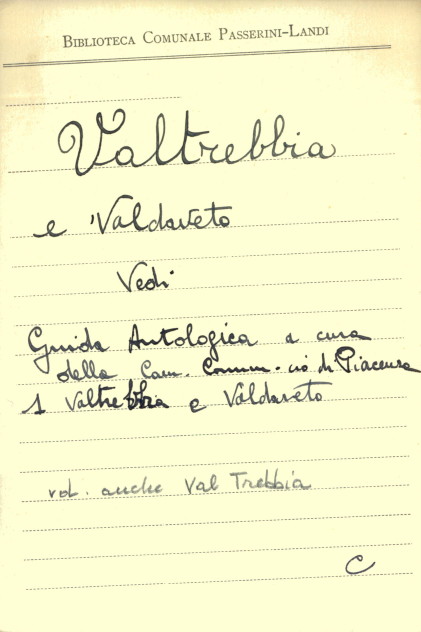 BIBLIOTECA COMUNALE PASSERINI-LANDI
Valtrebbia
e Valdaveto
Vedi
Guida Antologica a cura
della Cam. Comm.cio di Piacenza
1 Valtrebbia e Valdaveto
ved. anche Val Trebbia
C